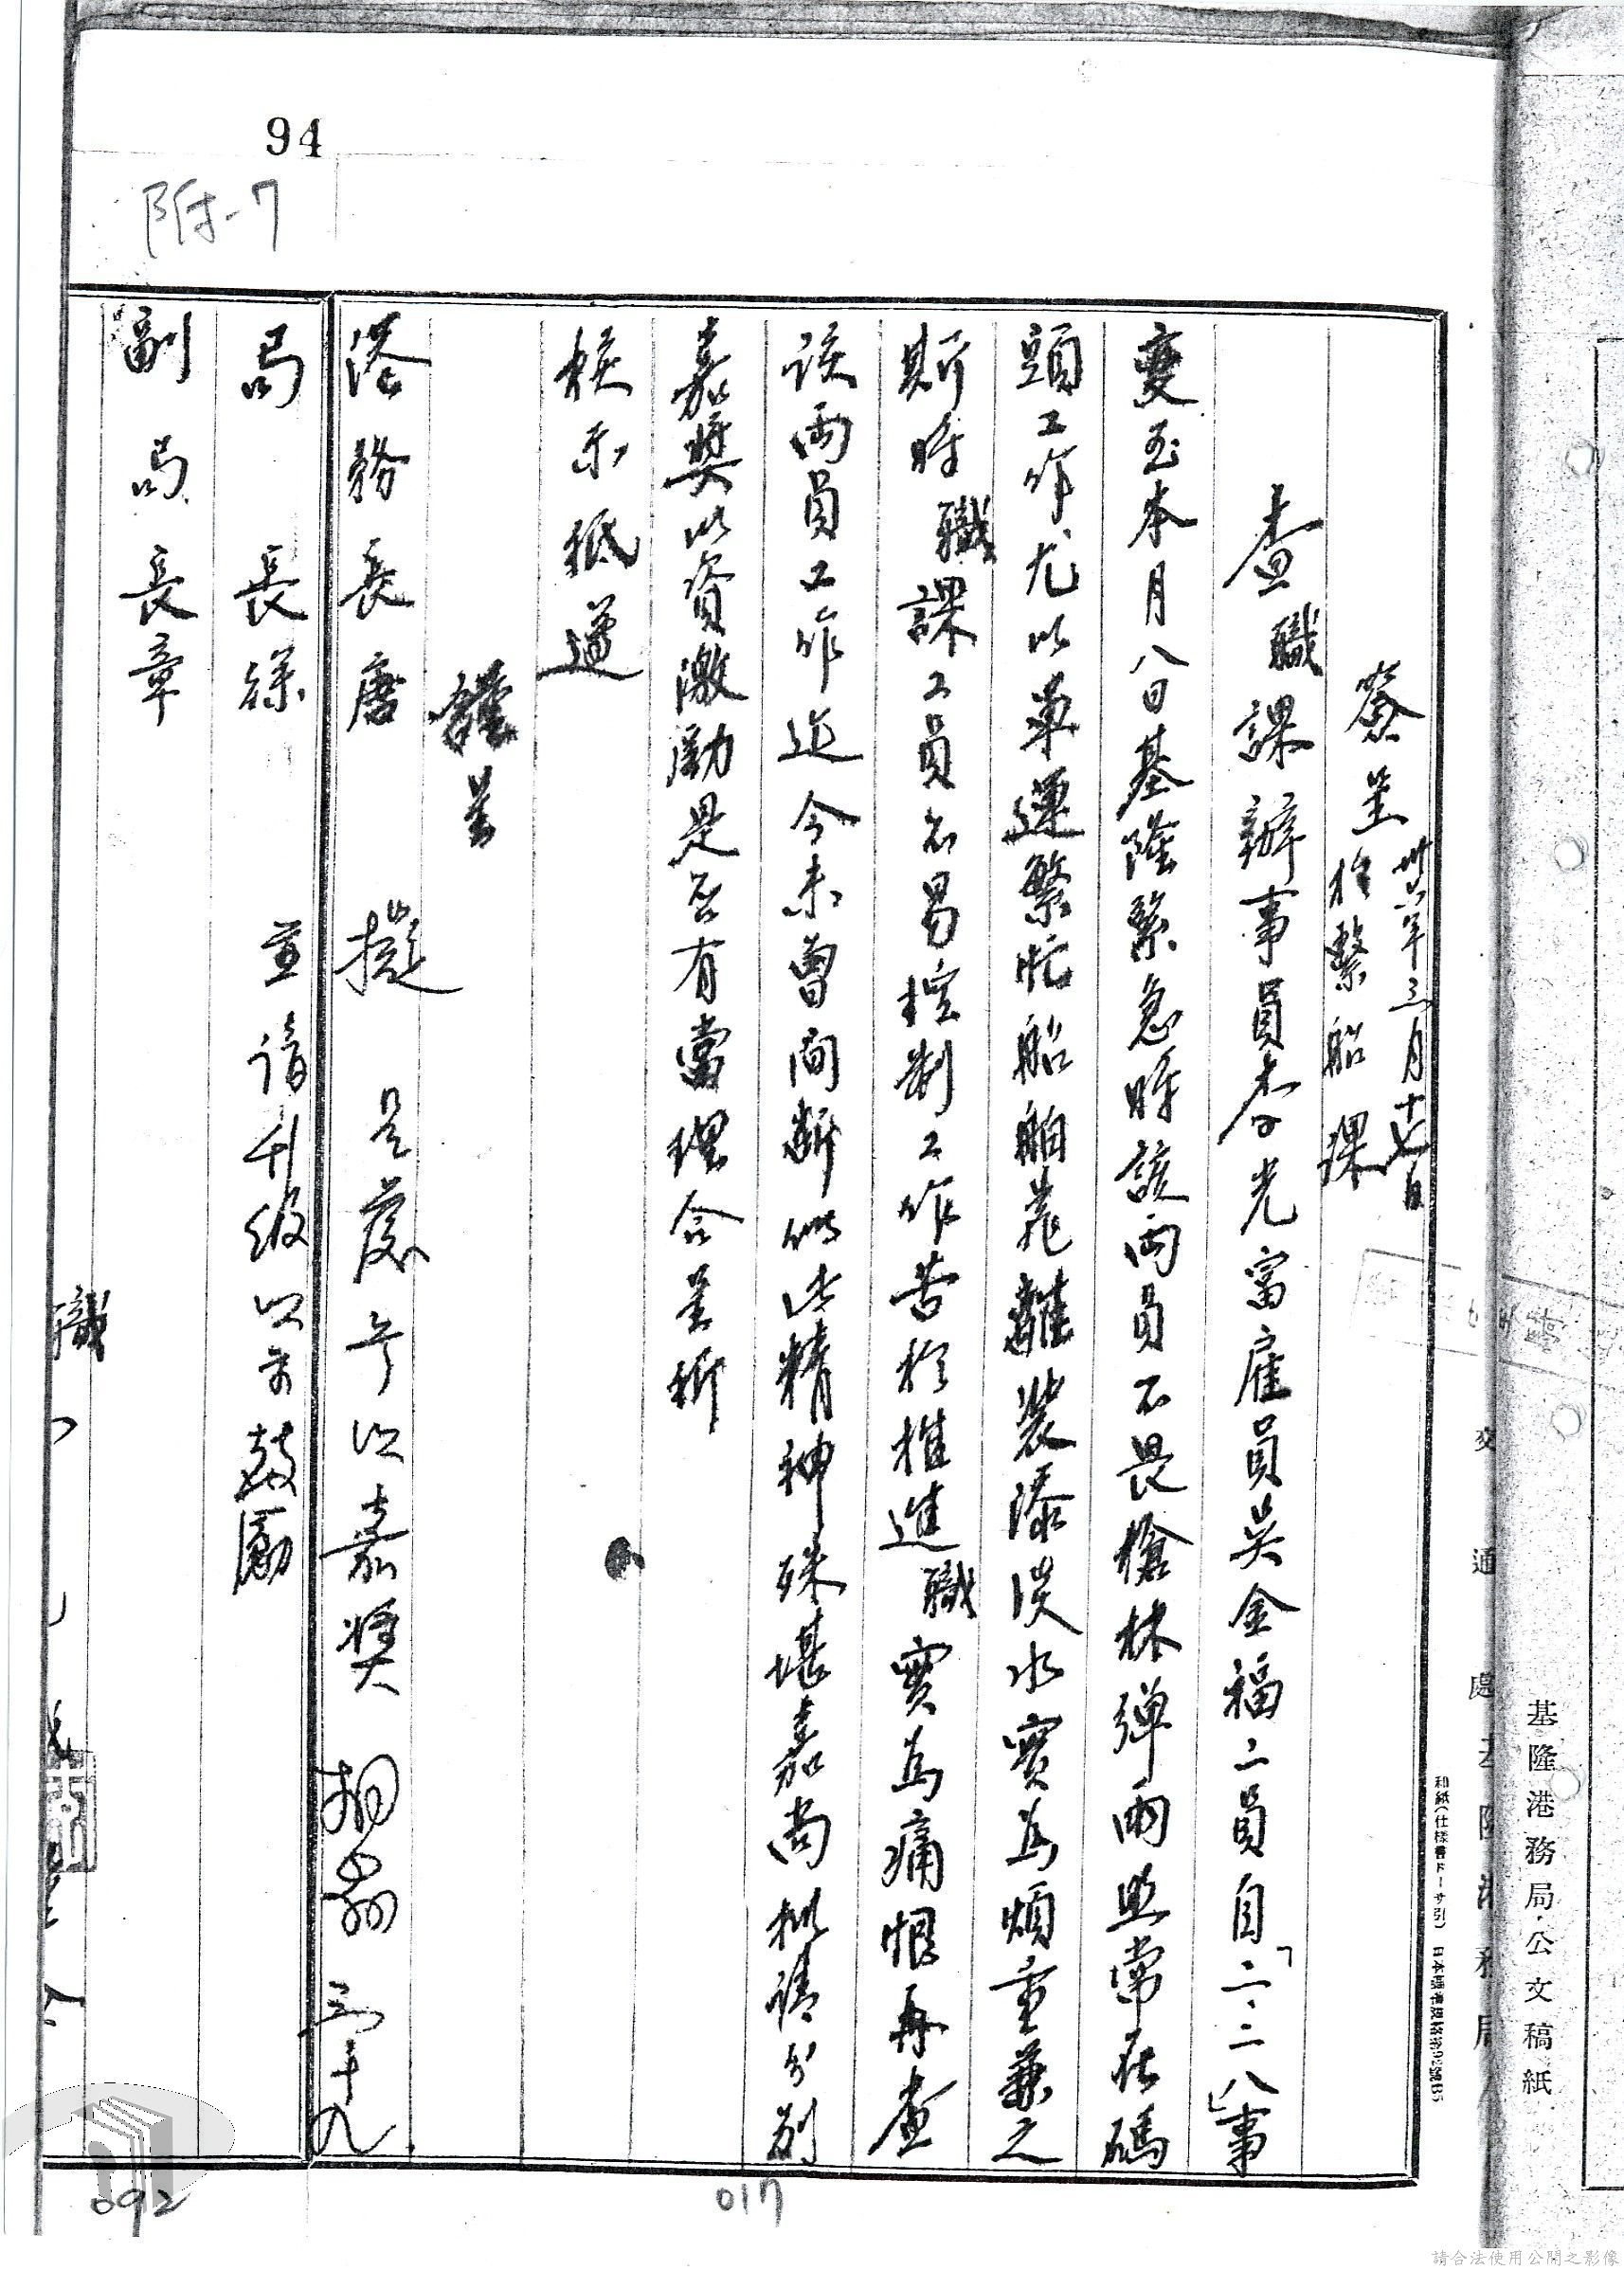 94
附-7
基隆港務局公文稿紙
簽呈 卅六年三月十七日
於繫船課
查職課辦事員李光富雇員吳金福二員自「二·二八」事
變至本月八日基隆緊急時該兩員不畏槍林彈雨照常在碼
頭工作尤以軍運繁忙船舶靠離裝添淡水實為煩重兼之
斯時職課工員不易控制工作苦於推進職實為痛恨再查
該兩員工作迄今未曾間斷似此精神殊堪嘉尚擬請分別
嘉獎以資激勵是否有當理合呈祈
核示祗遵
謹呈
港務長唐
擬 予以嘉獎
局長徐
並請升級以示鼓勵
副局長章
職
092
017
請合法使用公開之影像